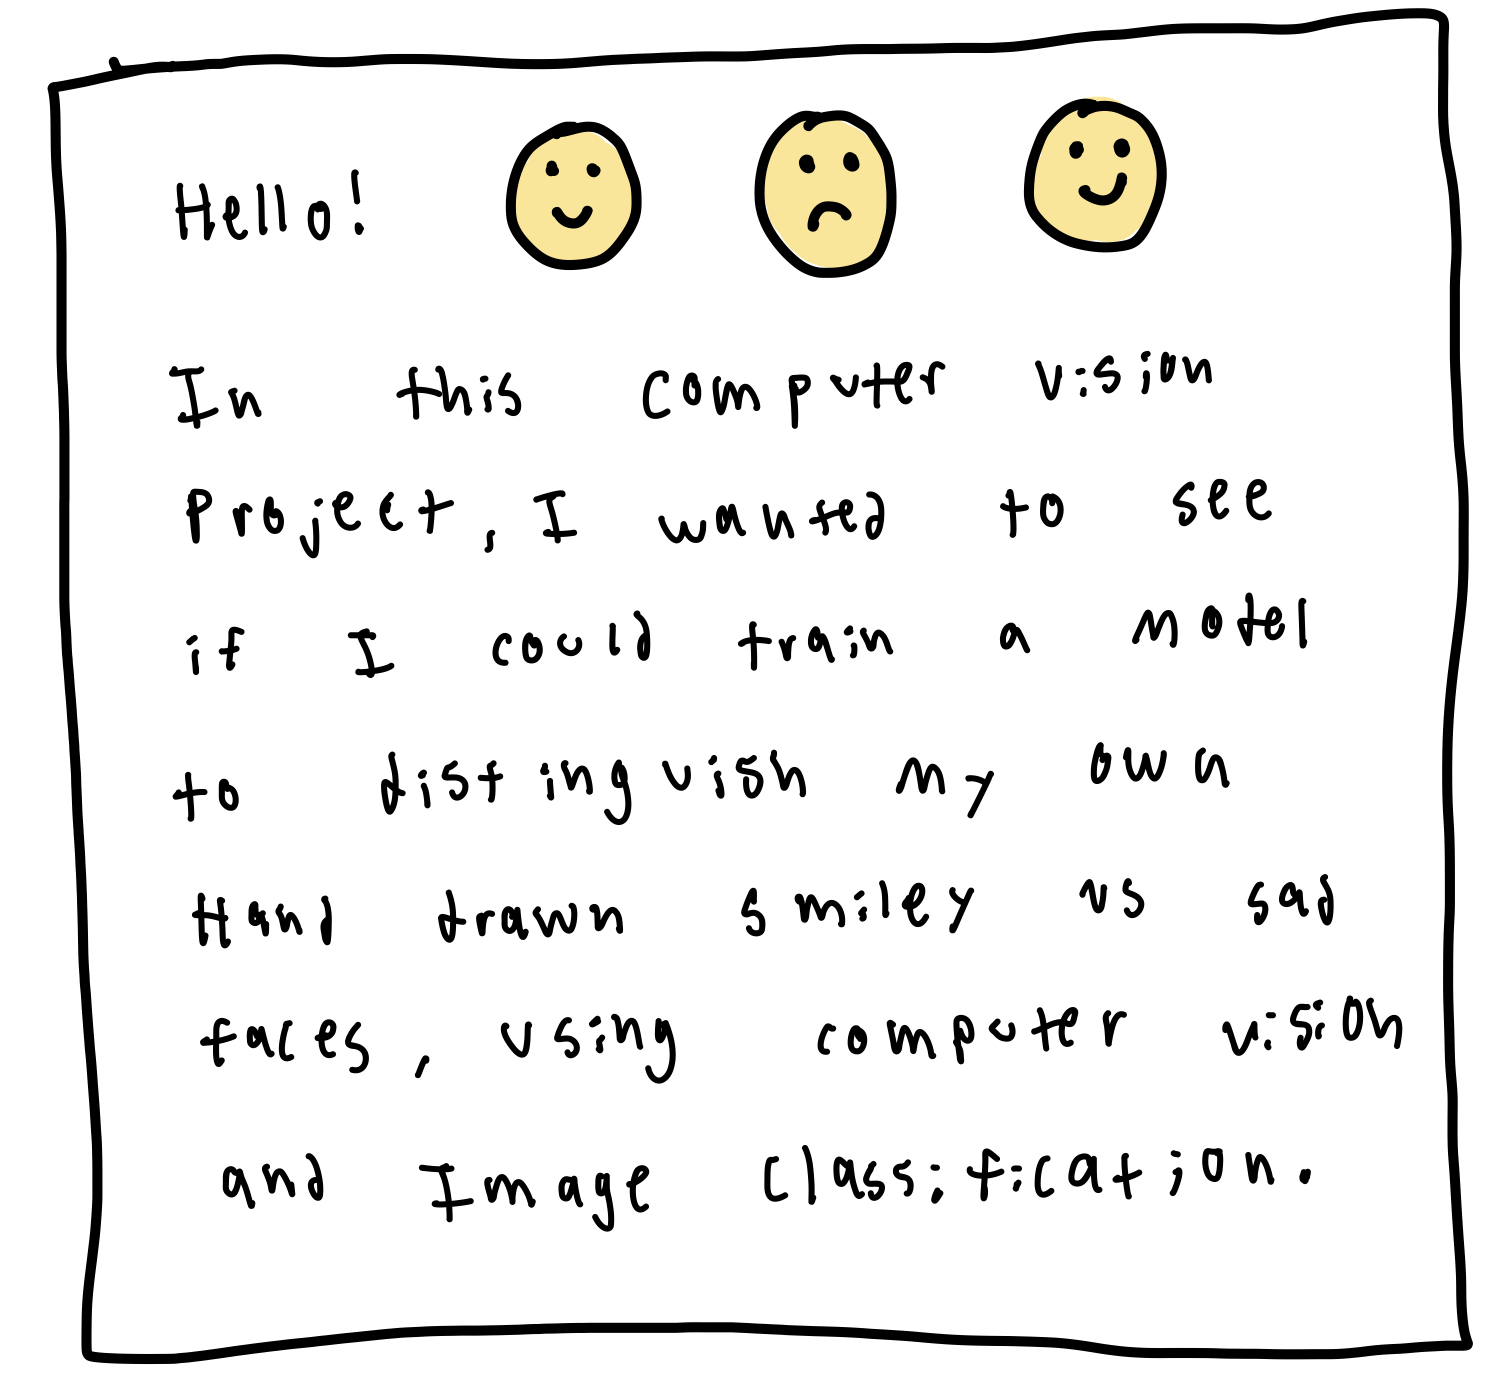 Hello!
In this computer vision
Project, I wanted to see
if I could train a model
to distinguish my own
Hand drawn smiley vs sad
faces, using computer vision
and Image classification.